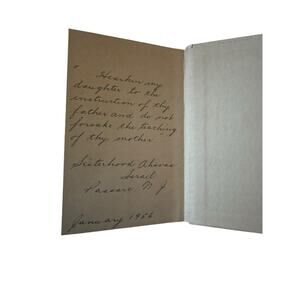 " Hearken my
daughter to the
instruction of thy
father and do not
forsake the teaching
of thy mother
Sisterhood Ahavas
Israel
Passaic N J
January 1966